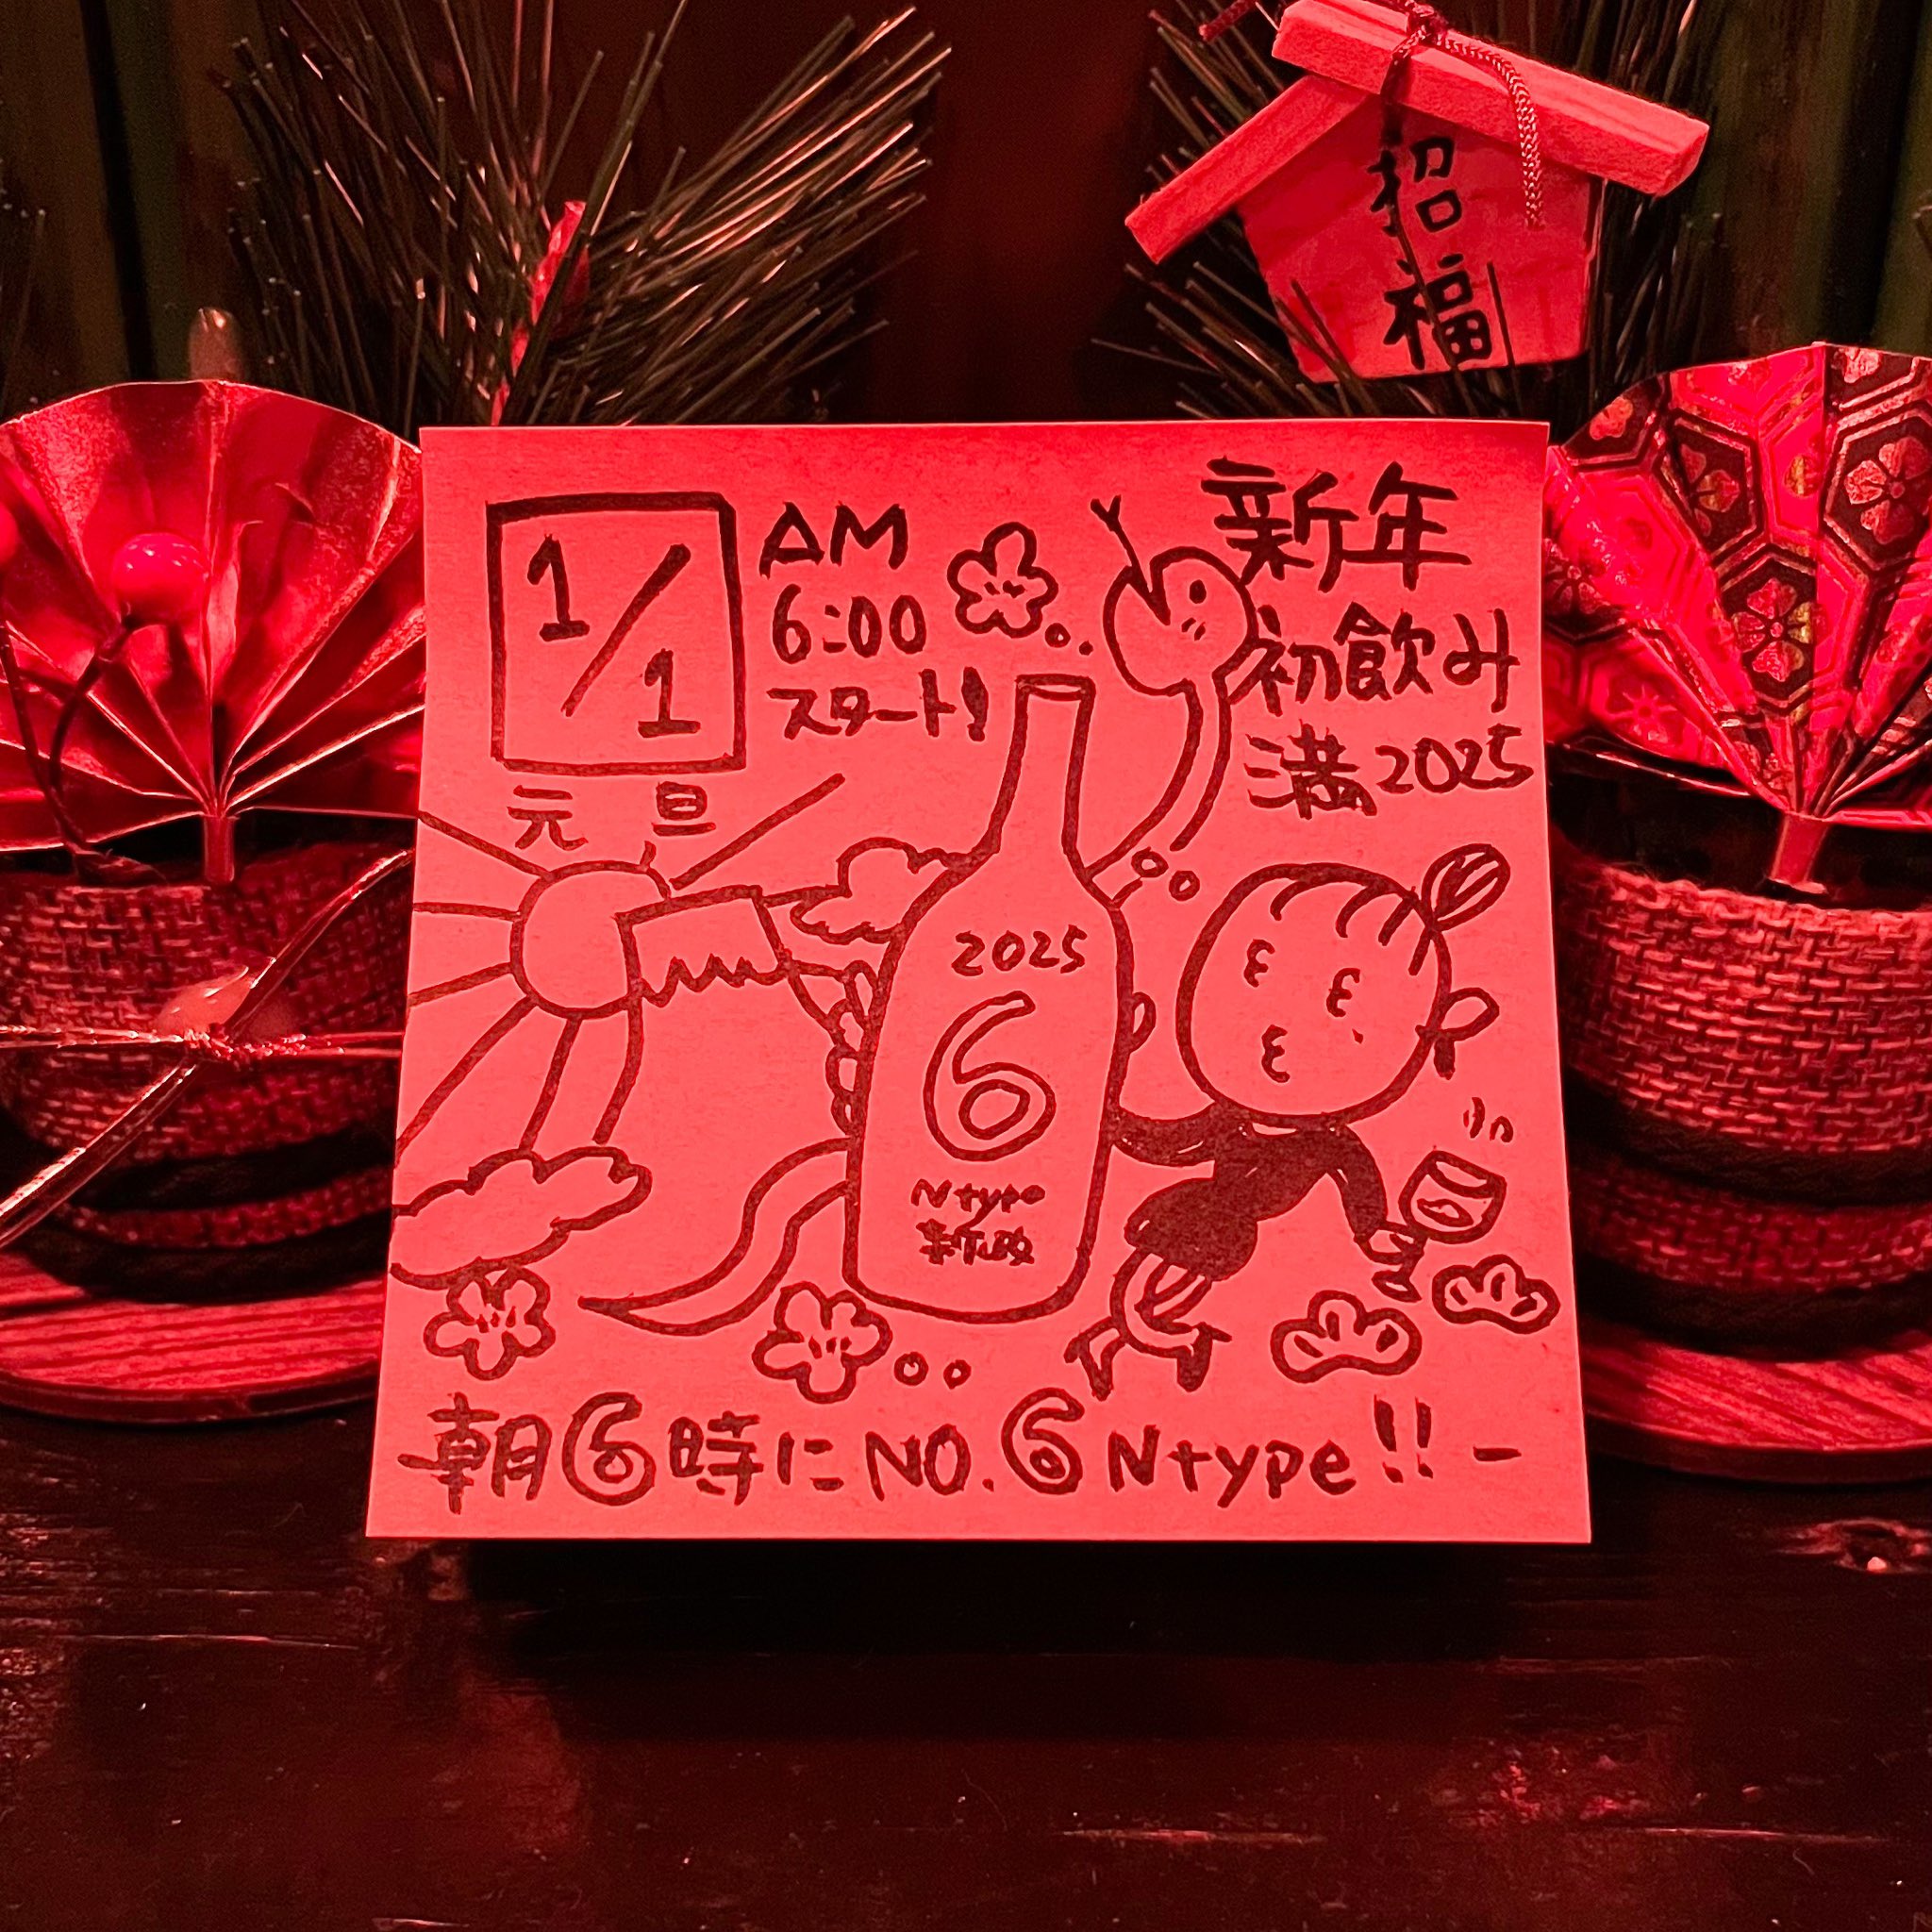 招福
1/1
元旦
AM
6:00
スタート!
新年
初飲み
満2025
2025
6
N type
新政
朝6時にNO.6 Ntype!!ー